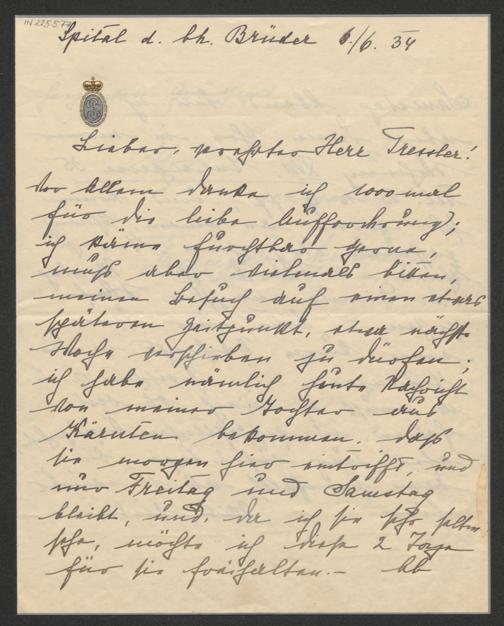 IN 225.577
Spital d. bh. Brüder 6/6. 34
Lieber, verehrter Herr Tressler!
Vor Allem danke ich 1000 mal
für die liebe Aufforderung;
ich käme furchtbar gerne,
muss aber vielmals bitten,
meinen Besuch auf einen etwas
späteren Zeitpunkt, etwa nächste
Woche verschieben zu dürfen;
ich habe nämlich heute Nachricht
von meiner Tochter aus
Kärnten bekommen, dass
sie morgen hier eintrifft, und
nur Freitag und Samstag
bleibt, und, da ich sie sehr selten
sehe, möchte ich diese 2 Tage
für sie freihalten. – Ab